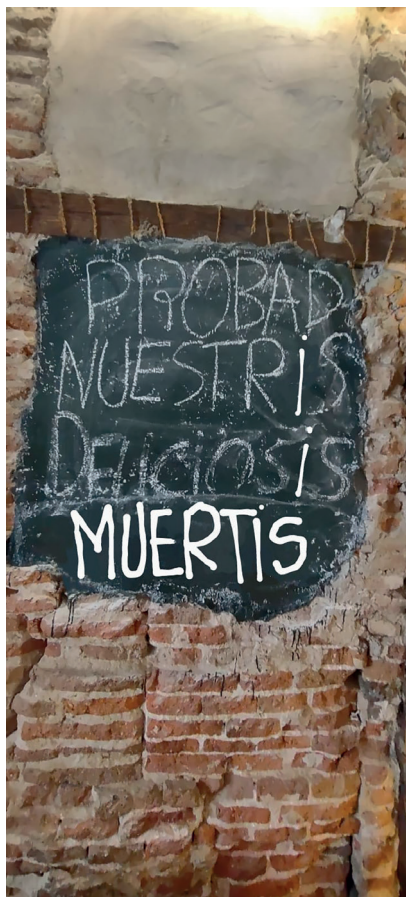 PROBAD
NUESTRiS
DELiCiOSiS
MUERTiS